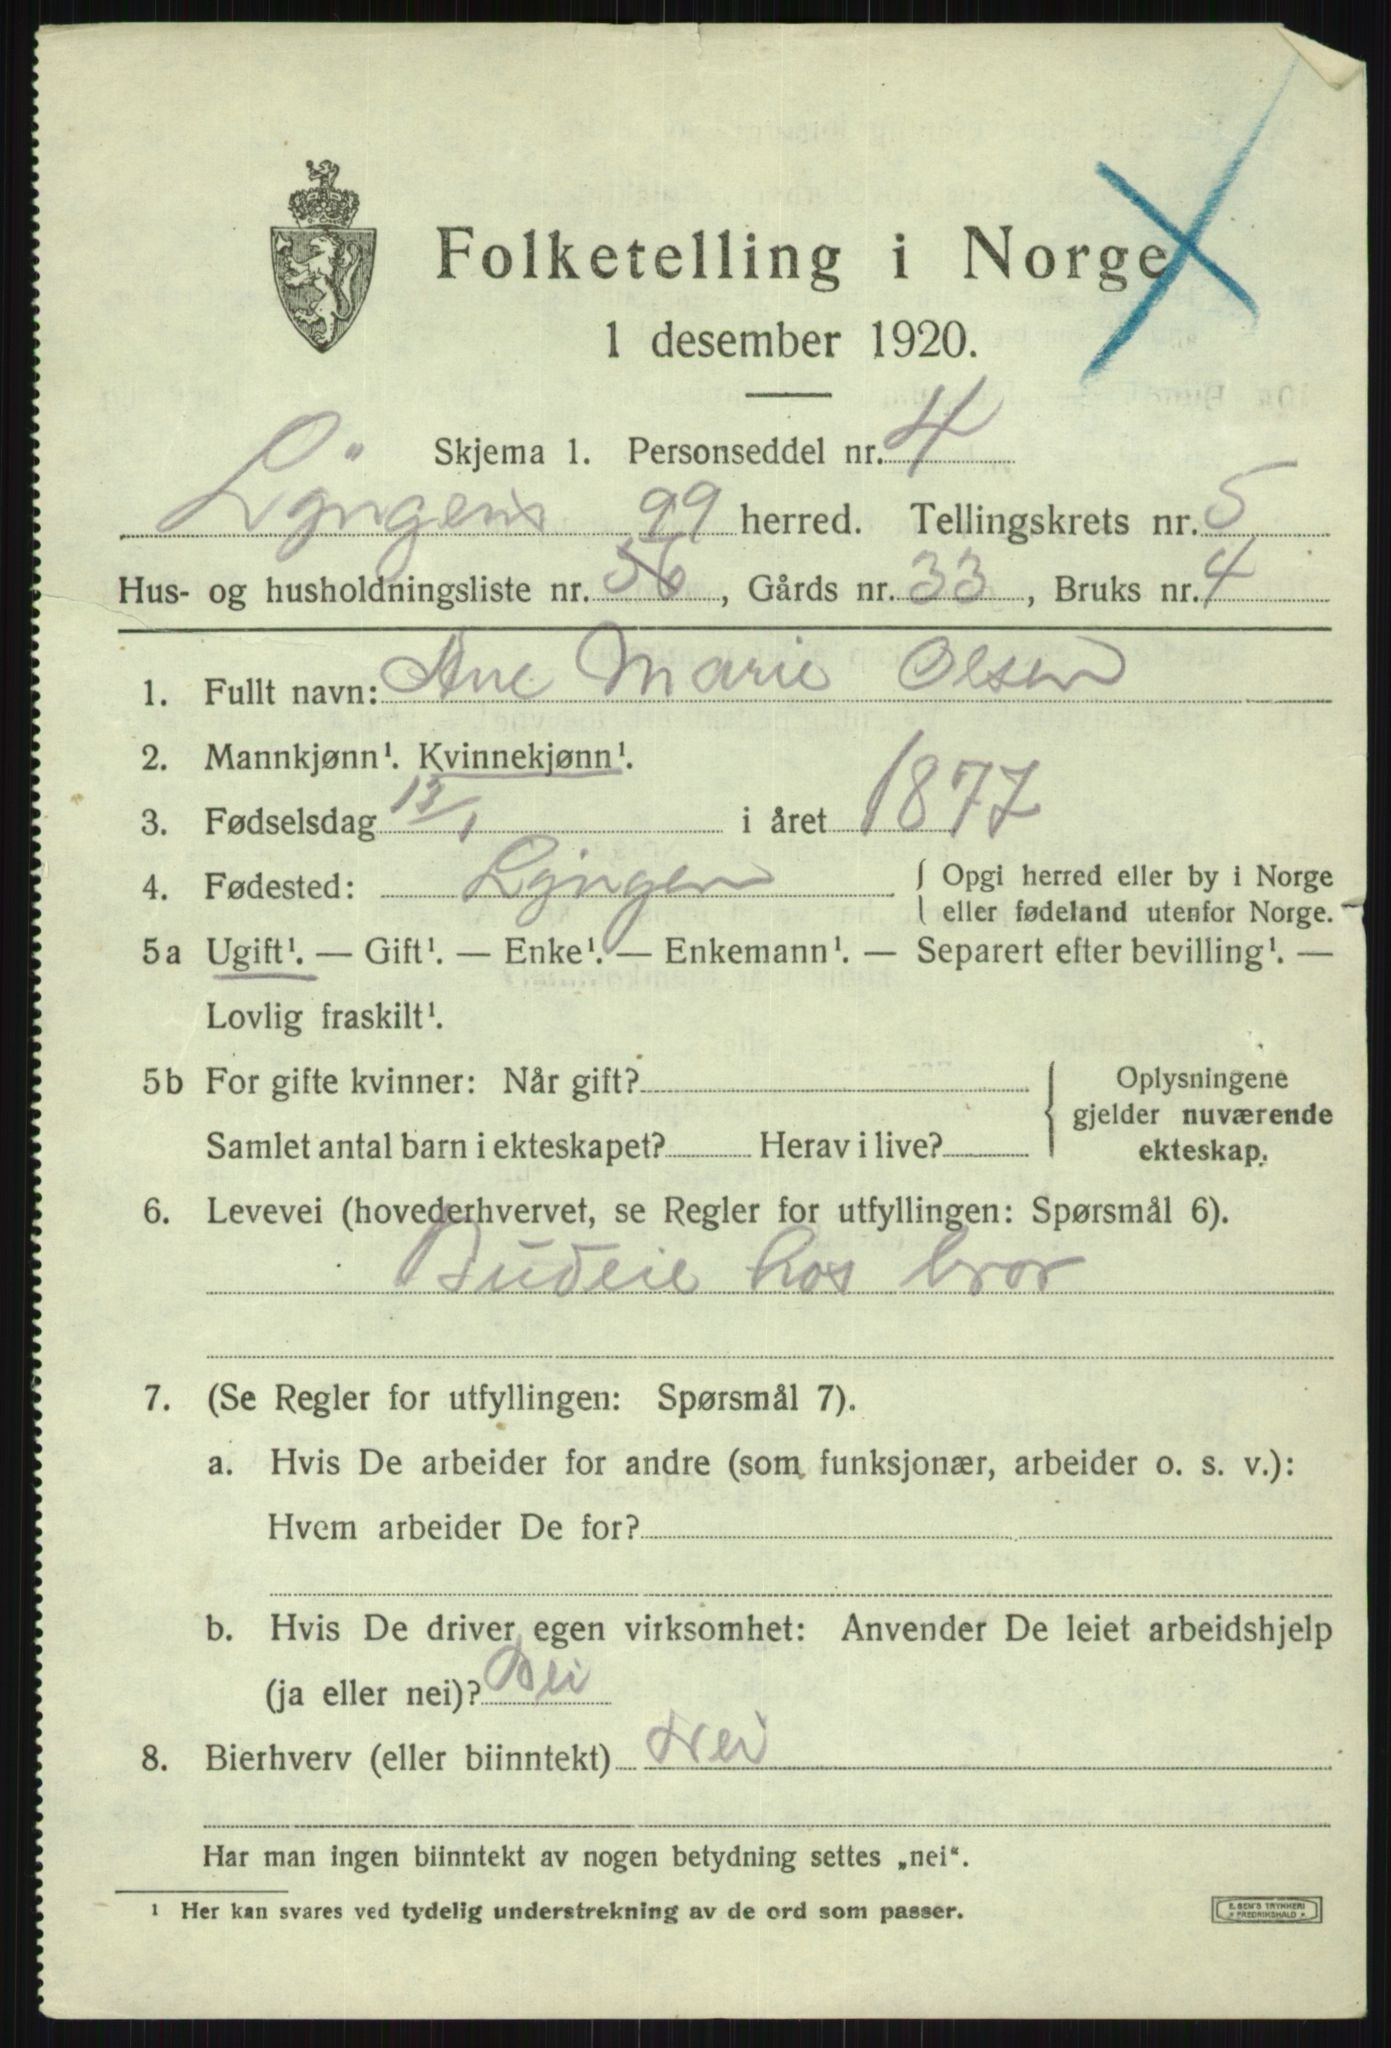 Folketelling i Norge
1 desember 1920.
Skjema 1. Personseddel nr. 4
Lyngens 99 herred. Tellingskrets nr. 5
Hus- og husholdningsliste nr. 56, Gårds nr. 33, Bruks nr. 4
1. Fullt navn: Ane Marie Olsen
2. Mannkjønn¹. Kvinnekjønn¹.
3. Fødselsdag 13/1 i året 1877
4. Fødested: Lyngen { Opgi herred eller by i Norge
eller fødeland utenfor Norge.
5a Ugift¹. — Gift¹. — Enke¹. — Enkemann¹. — Separert efter bevilling¹. —
Lovlig fraskilt¹.
5b For gifte kvinner: Når gift? { Oplysningene
gjelder nuværende
Samlet antal barn i ekteskapet? Herav i live? ekteskap.
6. Levevei (hovederhvervet, se Regler for utfyllingen: Spørsmål 6).
Budeie hos bror
7. (Se Regler for utfyllingen: Spørsmål 7).
a. Hvis De arbeider for andre (som funksjonær, arbeider o. s. v.):
Hvem arbeider De for?
b. Hvis De driver egen virksomhet: Anvender De leiet arbeidshjelp
(ja eller nei)? Nei
8. Bierhverv (eller biinntekt) Nei
Har man ingen biinntekt av nogen betydning settes „nei“.
¹ Her kan svares ved tydelig understrekning av de ord som passer.
E. SEM'S TRYKKERI
FREDRIKSHALD